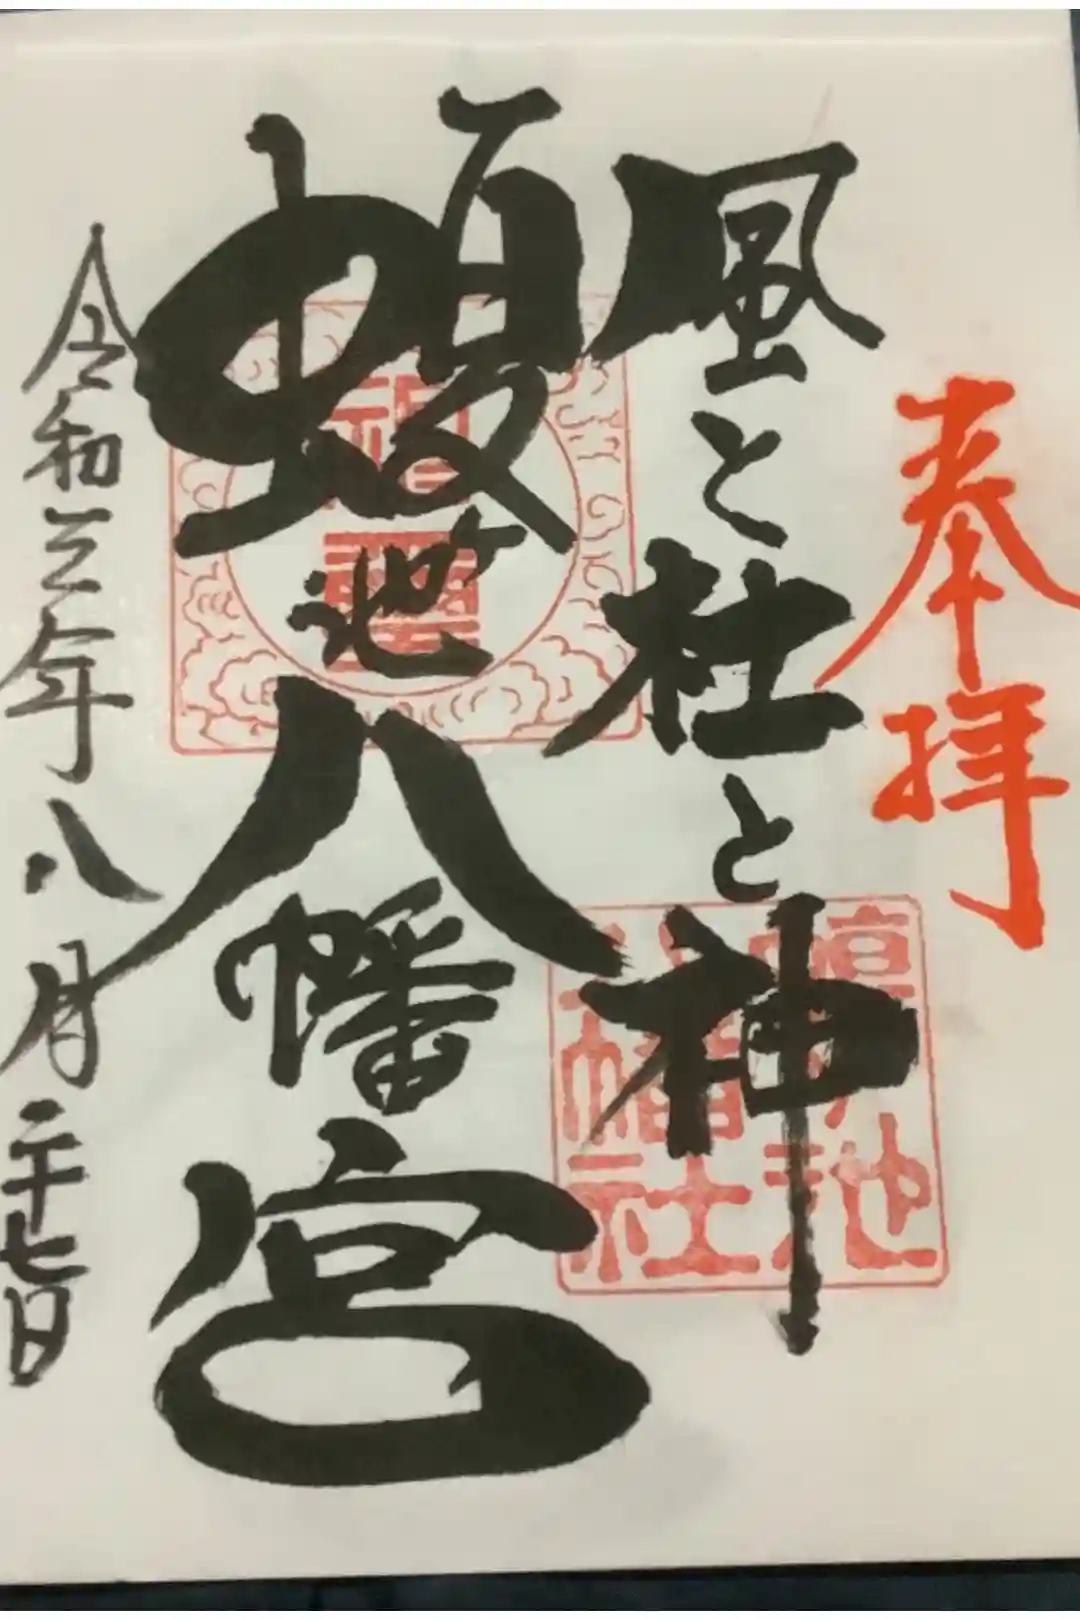 奉拝
風と杜と神
蝮ヶ池八幡宮
令和三年八月二十七日
蝮ヶ池
八幡社